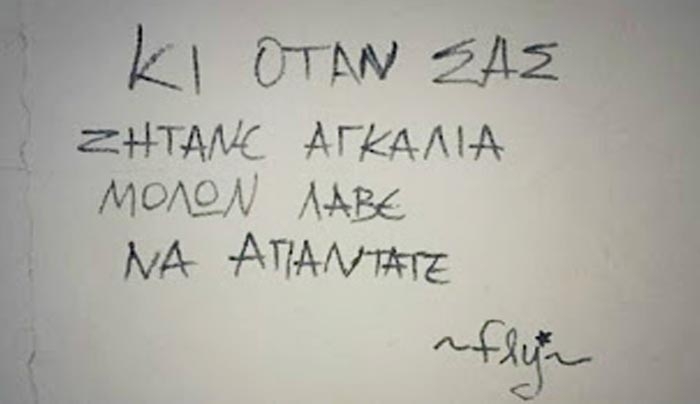 ΚΙ ΟΤΑΝ ΣΑΣ
ΖΗΤΑΝΕ ΑΓΚΑΛΙΑ
ΜΟΛΩΝ ΛΑΒΕ
ΝΑ ΑΠΑΝΤΑΤΕ
~fly*~